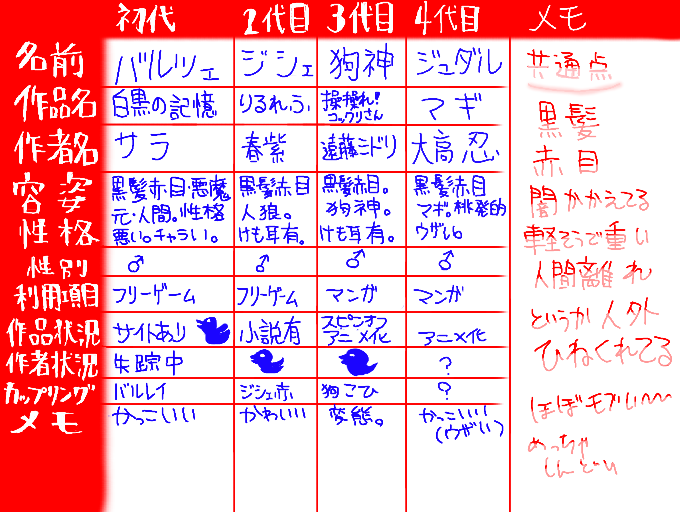 初代 2代目 3代目 4代目 メモ
名前 バルツェ ジシェ 狗神 ジュダル
作品名 白黒の記憶 りるれふ 操操れ!コックリさん マギ
作者名 サラ 春紫 遠藤ミドリ 大高忍
容姿 性格
黒髪赤目・悪魔
元・人間。性格
悪い。チャラい。
黒髪赤目
人狼。
けも耳有。
黒髪赤目。
狗神。
けも耳有。
黒髪赤目
マギ。挑発的
ウザい。
性別 ♂ ♂ ♂ ♂
利用項目 フリーゲーム フリーゲーム マンガ マンガ
作品状況 サイトあり 小説有 スピンオフ アニメ化 アニメ化
作者状況 失踪中 ?
カップリング バルレイ ジシェ赤 狗こひ ?
メモ かっこいい かわいい 変態。 かっこいい
(ウザい)
共通点
黒髪
赤目
闇かかえてる
軽そうで重い
人間離れ
というか人外
ひねくれてる
ほぼモブい〜〜
めっちゃ
しんどい